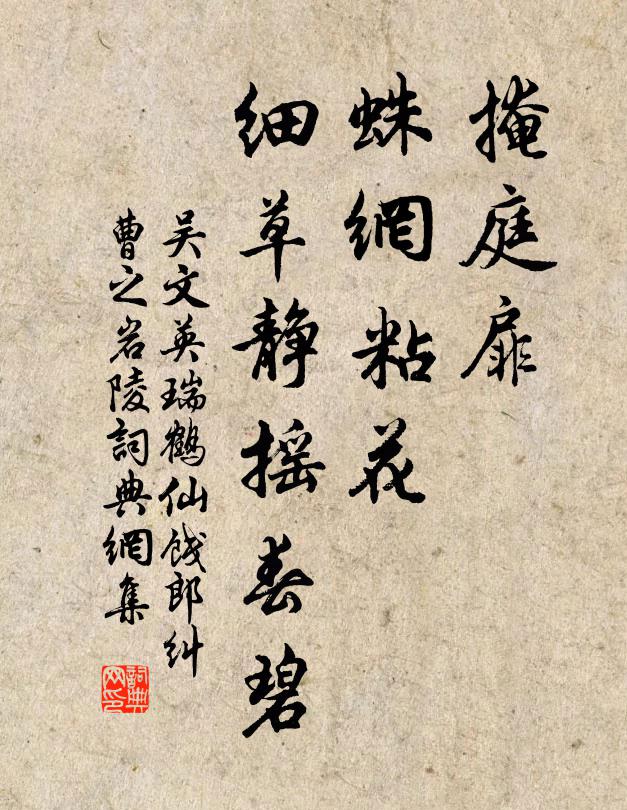 掩庭扉
蛛網粘花
細草静摇春碧
吴文英瑞鶴仙餞郎糾
曹之岩陵詞典網集
詞典网印